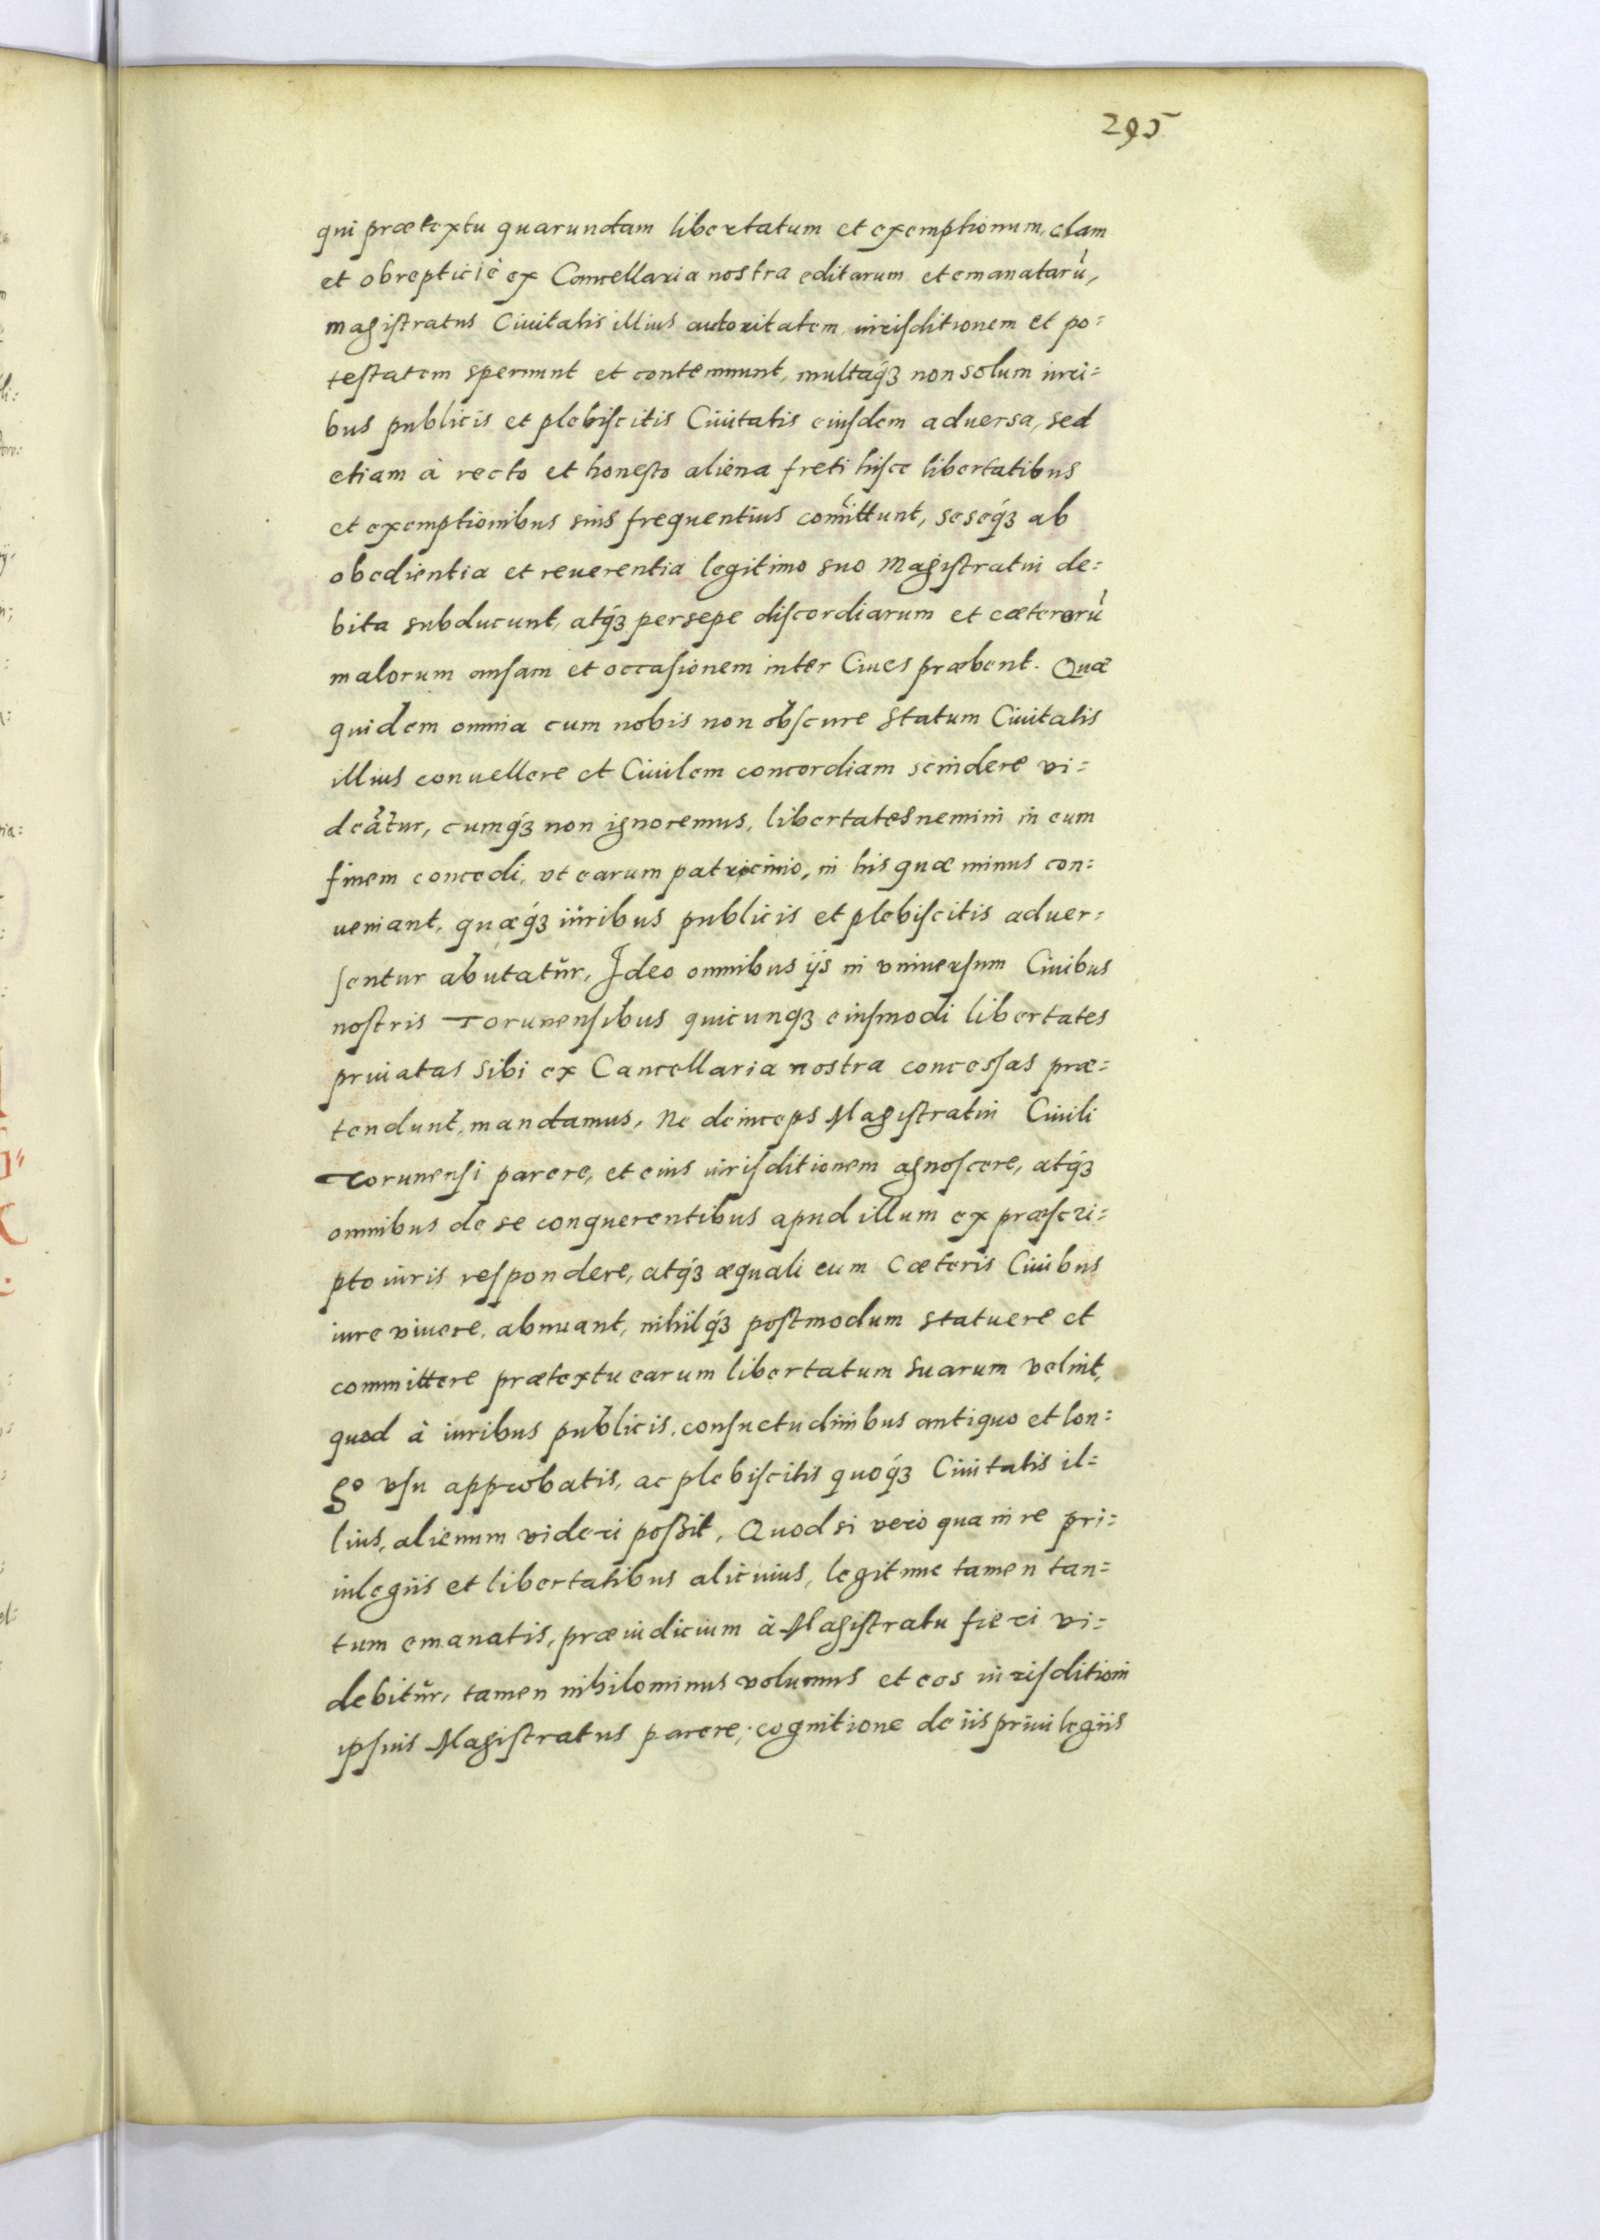 295
qui prætextu quarundam libertatum et exemptionum, clam
et obrepticiè ex Cancellaria nostra editarum et emanatarū,
magistratus Ciuitatis illius autoritatem, iurisditionem et po=
testatem spernunt et contemnunt, multaq́ꝫ non solum iuri=
bus publicis et plebiscitis Ciuitatis eiusdem aduersa, sed
etiam à recto et honesto aliena freti hisce libertatibus
et exemptionibus suis frequentius com̄ittunt, seseq́ꝫ ab
obedientia et reuerentia legitimo suo Magistratui de=
bita subducunt, atq́ꝫ persepe discordiarum et cæterorū
malorum ansam et occasionem inter Ciues præbent. Quæ
quidem omnia cum nobis non obscure statum Ciuitatis
illius conuellere et Ciuilem concordiam scindere vi=
deātur, cumq́ꝫ non ignoremus, libertates nemini in eum
finem concedi, vt earum patrocinio, in his quæ minus con=
ueniant, quæq́ꝫ iuribus publicis et plebiscitis aduer=
sentur abutatur, Ideo omnibus ijs in vniuersum Ciuibus
nostris Torunensibus quicunqꝫ eiusmodi libertates
priuatas sibi ex Cancellaria nostra concessas præ=
tendunt, mandamus, Ne deinceps Magistratui Ciuili
Torunensi parere, et eius iurisditionem agnoscere, atq́ꝫ
omnibus de se conquerentibus apud illum ex præscri=
pto iuris respondere, atq́ꝫ æquali cum Cæteris Ciuibus
iure viuere, abnuant, nihilq́ꝫ postmodum statuere et
committere prætextu earum libertatum suarum velint,
quod à iuribus publicis, consuetudinibus antiquo et lon=
go vsu approbatis, ac plebiscitis quoq́ꝫ Ciuitatis il=
lius, alienum videri possit, Quod si vero qua in re pri=
uilegiis et libertatibus alicuius, legitime tamen tan=
tum emanatis, præiudicium à Magistratu fieri vi=
debitur, tamen nihilominus volumus et eos iurisditioni
ipsius Magistratus parere, cognitione de iis priuilegiis